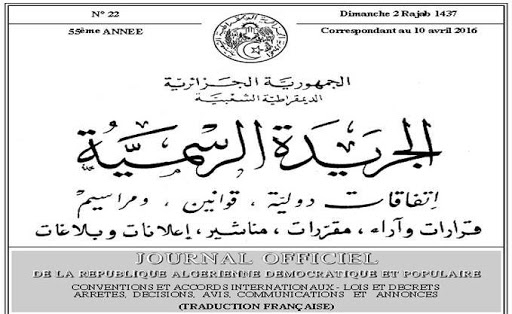 N° 22
Dimanche 2 Rajab 1437
55ème ANNEE
Correspondant au 10 avril 2016
الجمهورية الجزائرية
الديمقراطية الشعبية
الجريدة الرسمية
إتفاقات دولية ، قوانين ، ومراسيم
قرارات وآراء ، مقررات ، مناشير ، إعلانات وبلاغات
JOURNAL OFFICIEL
DE LA REPUBLIQUE ALGERIENNE DEMOCRATIQUE ET POPULAIRE
CONVENTIONS ET ACCORDS INTERNATIONAUX - LOIS ET DECRETS
ARRETES, DECISIONS, AVIS, COMMUNICATIONS ET ANNONCES
(TRADUCTION FRANÇAISE)